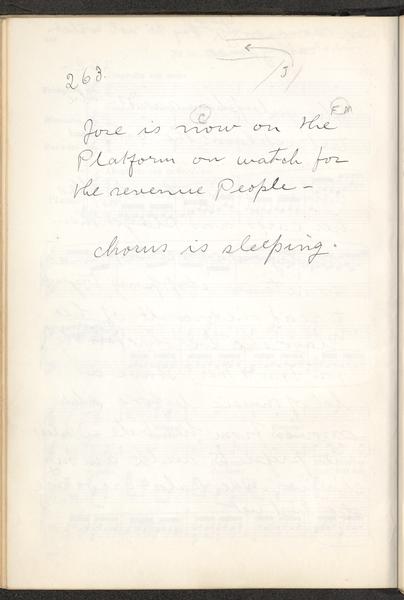 263.
J
C
F M
Jose is now on the
Platform on watch for
the revenue People -
Chorus is sleeping.